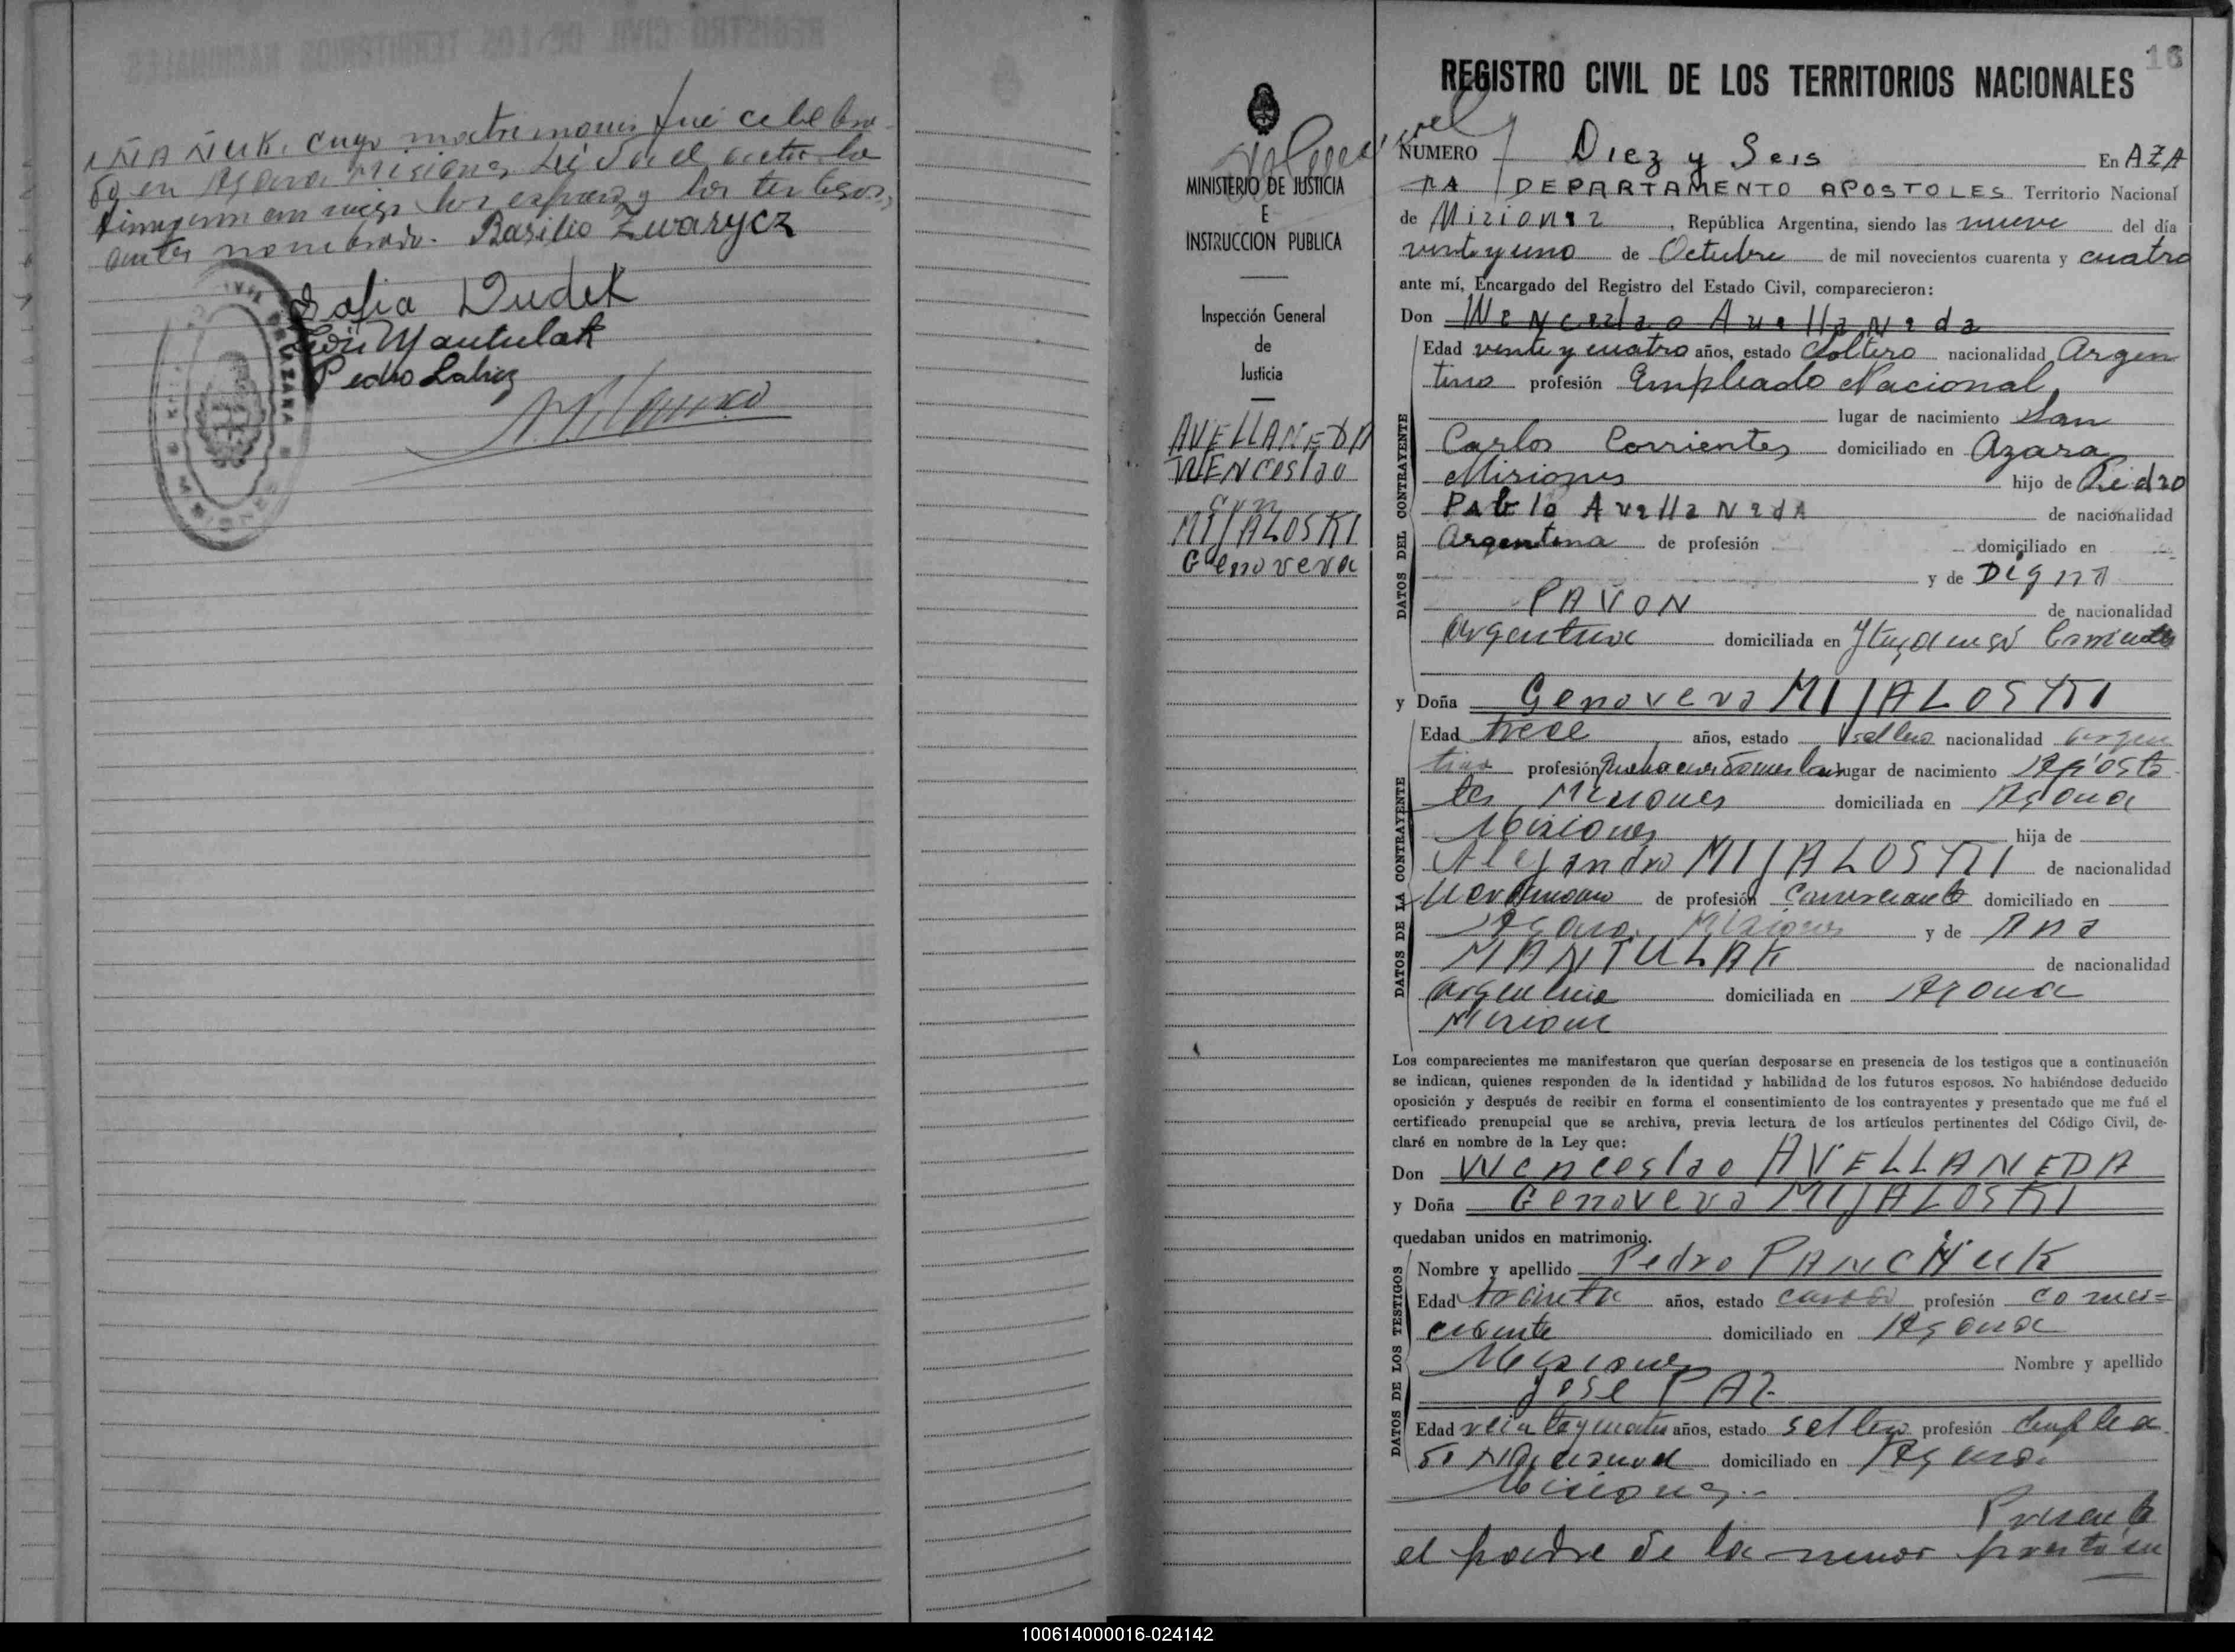 cuyo matrimonio fué celebra
do en Azara Misiones Leída el acta la
firmaron conmigo los esposos y los testigos
antes nombrado. Basilio Zwarycz
Sofia Dudek
León Mantulak
Pedro Labiez
16
REGISTRO CIVIL DE LOS TERRITORIOS NACIONALES
MINISTERIO DE JUSTICIA
E
INSTRUCCION PUBLICA
Inspección General
de
Justicia
AVELLANEDA
WENCeslao
con
MIJALOSKI
Genoveva
NUMERO Diez y Seis En AZA
RA DEPARTAMENTO APOSTOLES Territorio Nacional
de Misiones, República Argentina, siendo las nueve del día
veinte y uno de Octubre de mil novecientos cuarenta y cuatro
ante mí, Encargado del Registro del Estado Civil, comparecieron:
Don Wenceslao Avellaneda
Edad veinte y cuatro años, estado Soltero nacionalidad Argen
tino profesión Empleado Nacional
lugar de nacimiento San
Carlos Corrientes domiciliado en Azara
Misiones hijo de Pedro
Pablo Avellaneda de nacionalidad
Argentina de profesión domiciliado en
y de Digna
PAVON de nacionalidad
argentina domiciliada en Ituzaingó Corrientes
y Doña Genoveva MIJALOSKI
Edad trece años, estado soltera nacionalidad argen
tina profesión Quehaceres domesticos lugar de nacimiento Aposto
les Misiones domiciliada en Azara
Misiones hija de
Alejandro MIJALOSKI de nacionalidad
de profesión comerciante domiciliado en
Azara Misiones y de Ana
MANTULAK de nacionalidad
argentina domiciliada en Azara
Misiones
Los comparecientes me manifestaron que querían desposarse en presencia de los testigos que a continuación
se indican, quienes responden de la identidad y habilidad de los futuros esposos. No habiéndose deducido
oposición y después de recibir en forma el consentimiento de los contrayentes y presentado que me fué el
certificado prenupcial que se archiva, previa lectura de los artículos pertinentes del Código Civil, de-
claré en nombre de la Ley que:
Don Wenceslao AVELLANEDA
y Doña Genoveva MIJALOSKI
quedaban unidos en matrimonio.
Nombre y apellido Pedro PANCHUK
Edad treinta años, estado casado profesión comer=
ciante domiciliado en Azara
Misiones Nombre y apellido
José PAZ
Edad veinte y cuatro años, estado soltero profesión Emplea
do Nacional domiciliado en Azara
Misiones.-
Presente
el padre de la menor prestó su
DATOS DEL CONTRAYENTE
DATOS DE LA CONTRAYENTE
DATOS DE LOS TESTIGOS
100614000016-024142